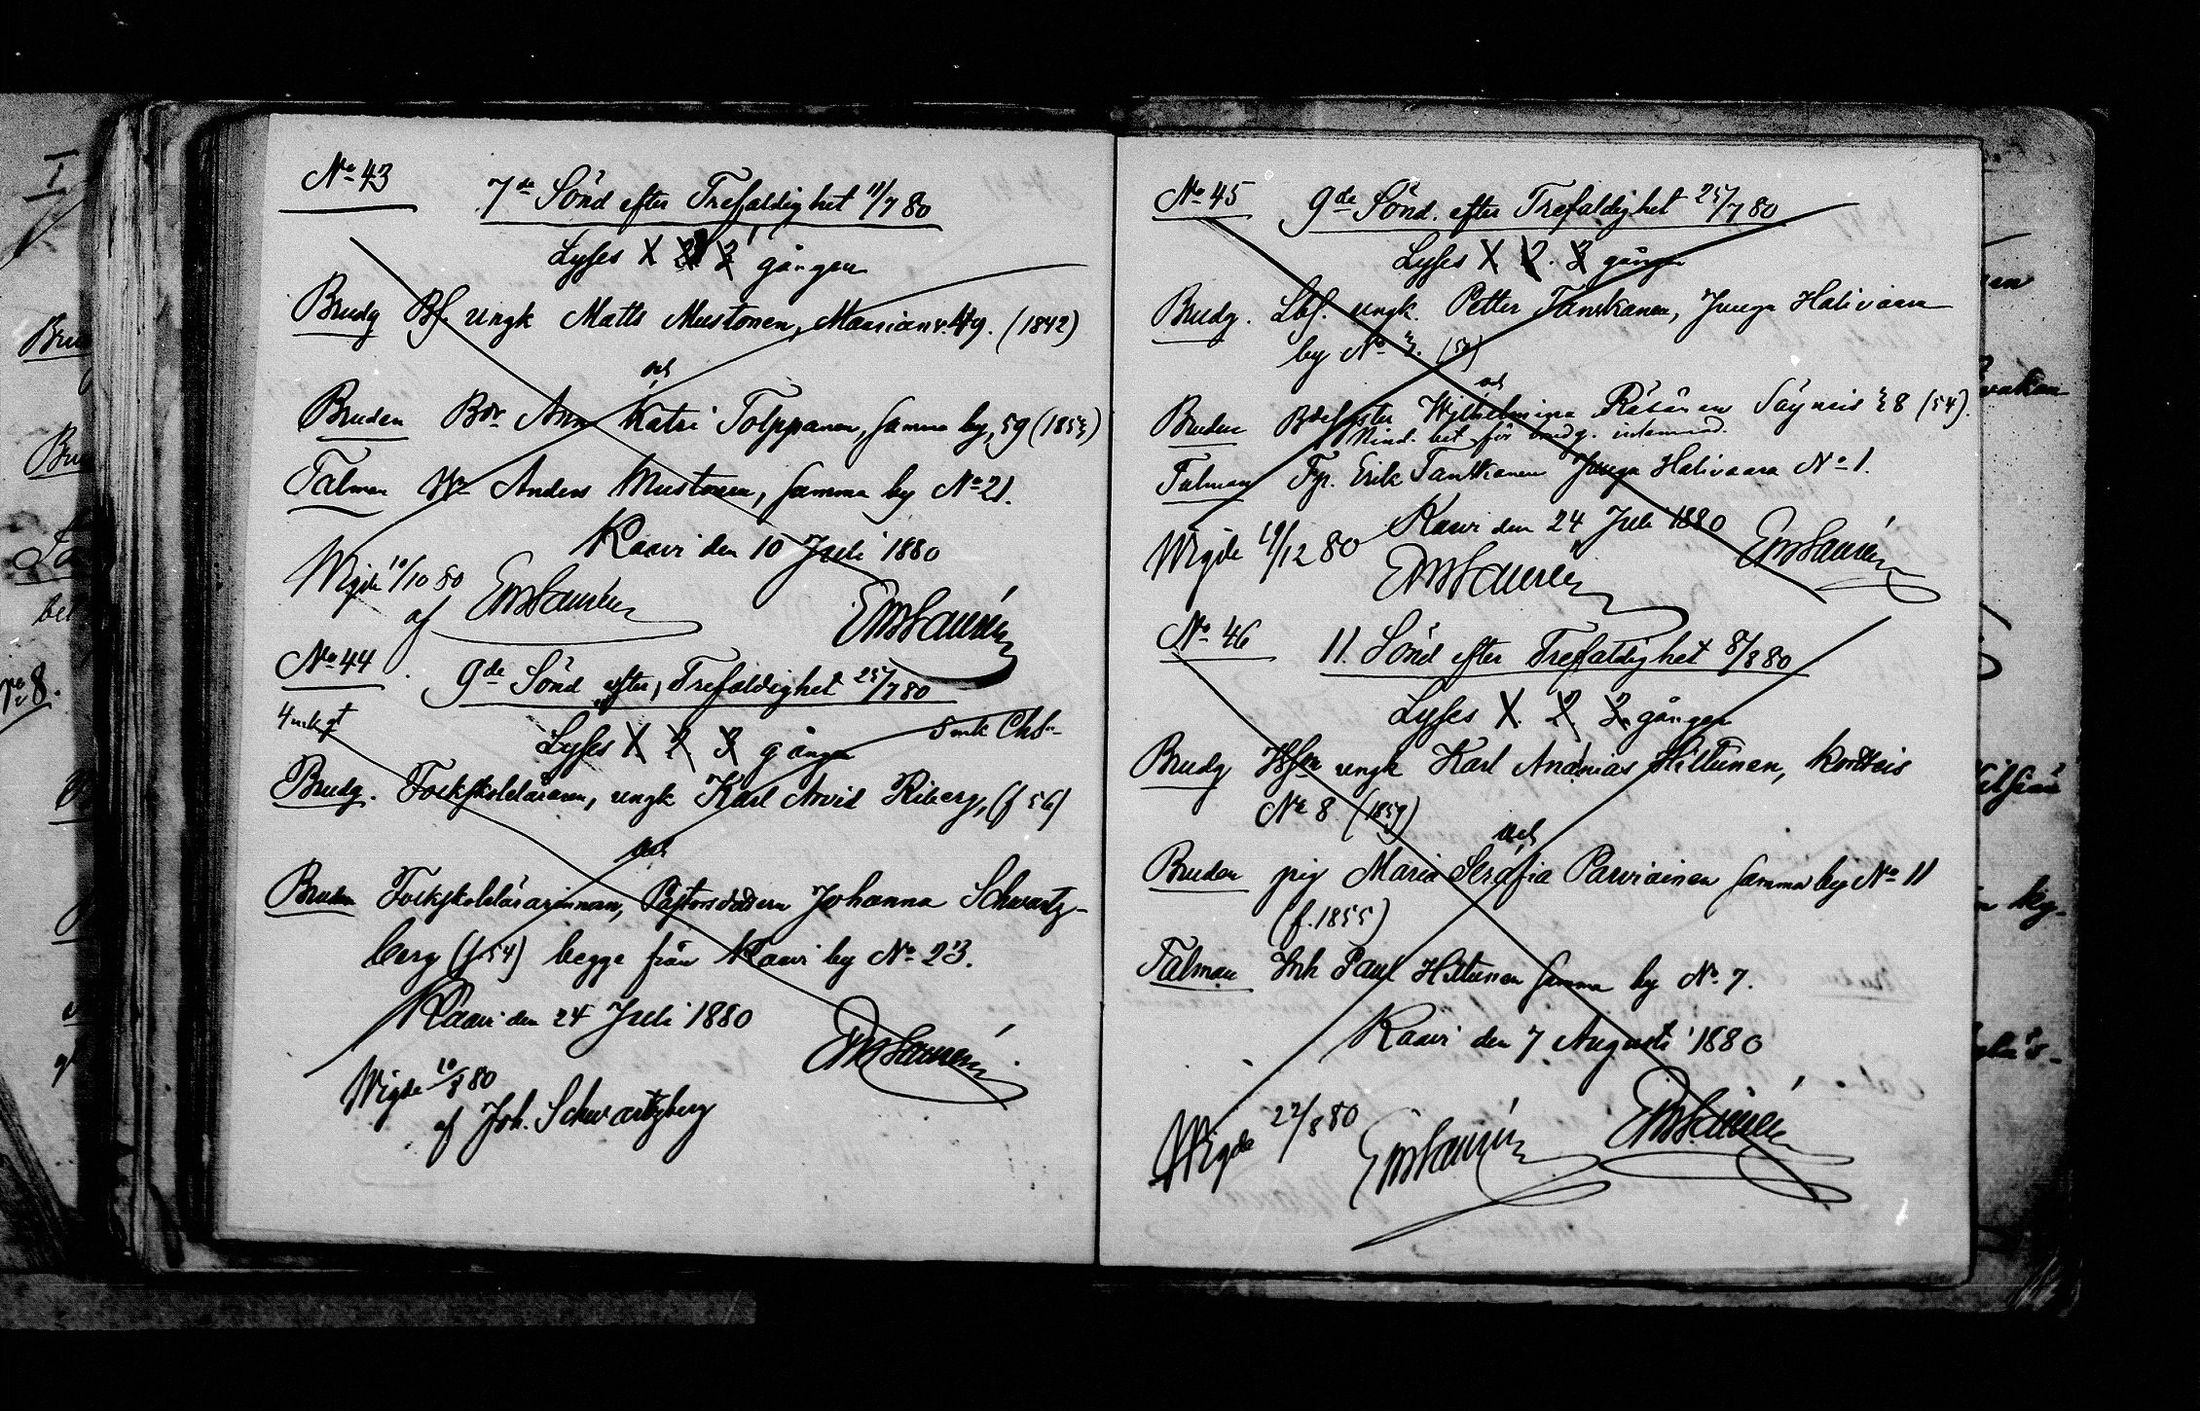 No 43
7de Sönd efter Trefaldighet 11/7 80
Lyses X 2 3 gången
Brudg Bf. ungk Matts Mustonen, Maarianv. 49. (1842)
och
Bruden Bdr Ann Katri Tolppanen, samma by, 59 (1853)
Talman Anders Mustonen, samma by No 21.
Kaavi den 10 Juli 1880
Wigde 10/10 80
af EmLaurén
EmLaurén
No 44
9de Sönd efter Trefaldighet 25/7 80
4 mk gt
Lyses X 2 3 gången
5 mk
Brudg. Folkskoleläraren, ungk Karl Arvid Riberg, (f 56)
och
Bruden Folkskolelärarinnan, Pastorsdottern Johanna Schwartz-
berg (f. 54) begge från Kaavi by No 23.
Kaavi den 24 Juli 1880
EmLaurén
Wigde 10/8 80
af Joh. Schwartzberg
No 45
9de Sönd. efter Trefaldighet 25/7 80
Lyses X 2. 3 gången
Brudg. Lbf. ungk. Petter Tanskanen, Junga Halivaara
by No 3.
och
Bruden Wilhelmina Räsänen Säyneis 8 (54).
Hind. bet. för brudg.
Talman Erik Tanskanen Junga Halivaara No 1.
Kaavi den 24 Juli 1880
Wigde 19/12 80
EmLaurén
EmLaurén
No 46
11. Sönd efter Trefaldighet 8/8 80
Lyses X. 2 3 gången
Brudg ungk Karl Ananias Hiltunen, Kortteis
No 8 (1859)
och
Bruden pig Maria Serafia Parviainen samma by No 11
(f. 1855)
Talman Inh Paul Hiltunen samma by No. 7.
Kaavi den 7 Augusti 1880
Wigde 22/8 80
EmLaurén
EmLaurén